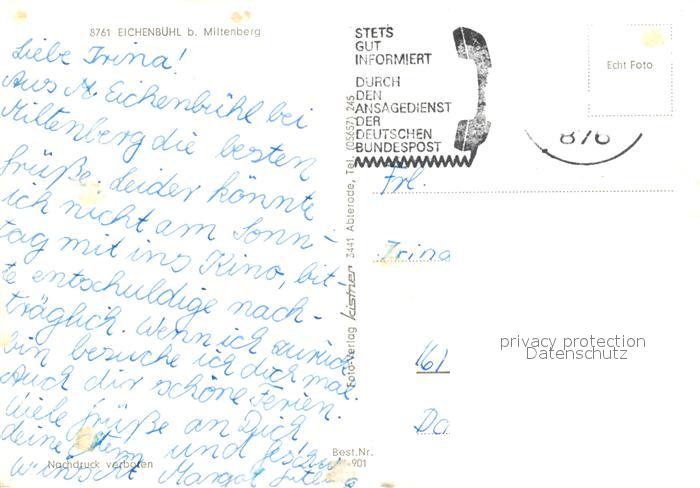 8761 EICHENBÜHL b. Miltenberg
Liebe Irina!
Aus M. Eichenbühl bei
Miltenberg die besten
Grüße. Leider konnte
ich nicht am Sonn-
tag mit ins Kino, bit-
te entschuldige nach-
träglich. Wenn ich zurück
bin besuche ich dich mal.
Auch dir schöne Ferien.
Viele Grüße an Dich
deine Eltern und
wünscht Margot
Nachdruck verboten
Best.Nr.
-901
Foto-Verlag kistner 3441 Abterode, Tel. (05657) 245
STETS
GUT
INFORMIERT
DURCH
DEN
ANSAGEDIENST
DER
DEUTSCHEN
BUNDESPOST
876
Echt Foto
Frl.
Irina
privacy protection
Datenschutz